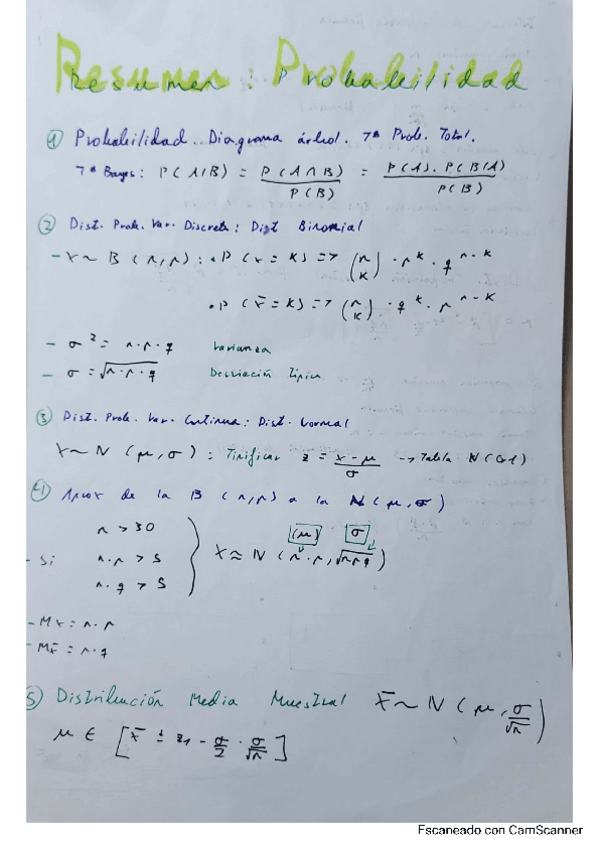 Resumen: Probabilidad
① Probabilidad. Diagrama árbol. Tª Prob. Total.
Tª Bayes: P(A/B) = P(A∩B)/P(B) = P(A). P(B/A)/P(B)
② Dist. Prob. Var. Discreta: Dist Binomial
- X ~ B (n, p): • P (x = K) => (n K) · p^K · q^n-K
• P (x̄ = K) => (n K) · q^K · p^n-K
- σ² = n·p·q Varianza
- σ = √n·p·q Desviación típica
③ Dist. Prob. Var. Continua: Dist. Normal
X ~ N (μ, σ): Tipificar z = x-μ/σ → Tabla N(0,1)
4) Aprox de la B (n, p) a la N(μ, σ)
n > 30
- Si n·p > 5
n·q > 5
(μ) σ
X ≈ N (n·p, √npq)
- Mx = n·p
- Mx̄ = n·q
5) Distribución Media Muestral X̄ ~ N (μ, σ/√n)
μ ∈ [x̄ ± z1 - σ/2 · σ/√n]
Escaneado con CamScanner